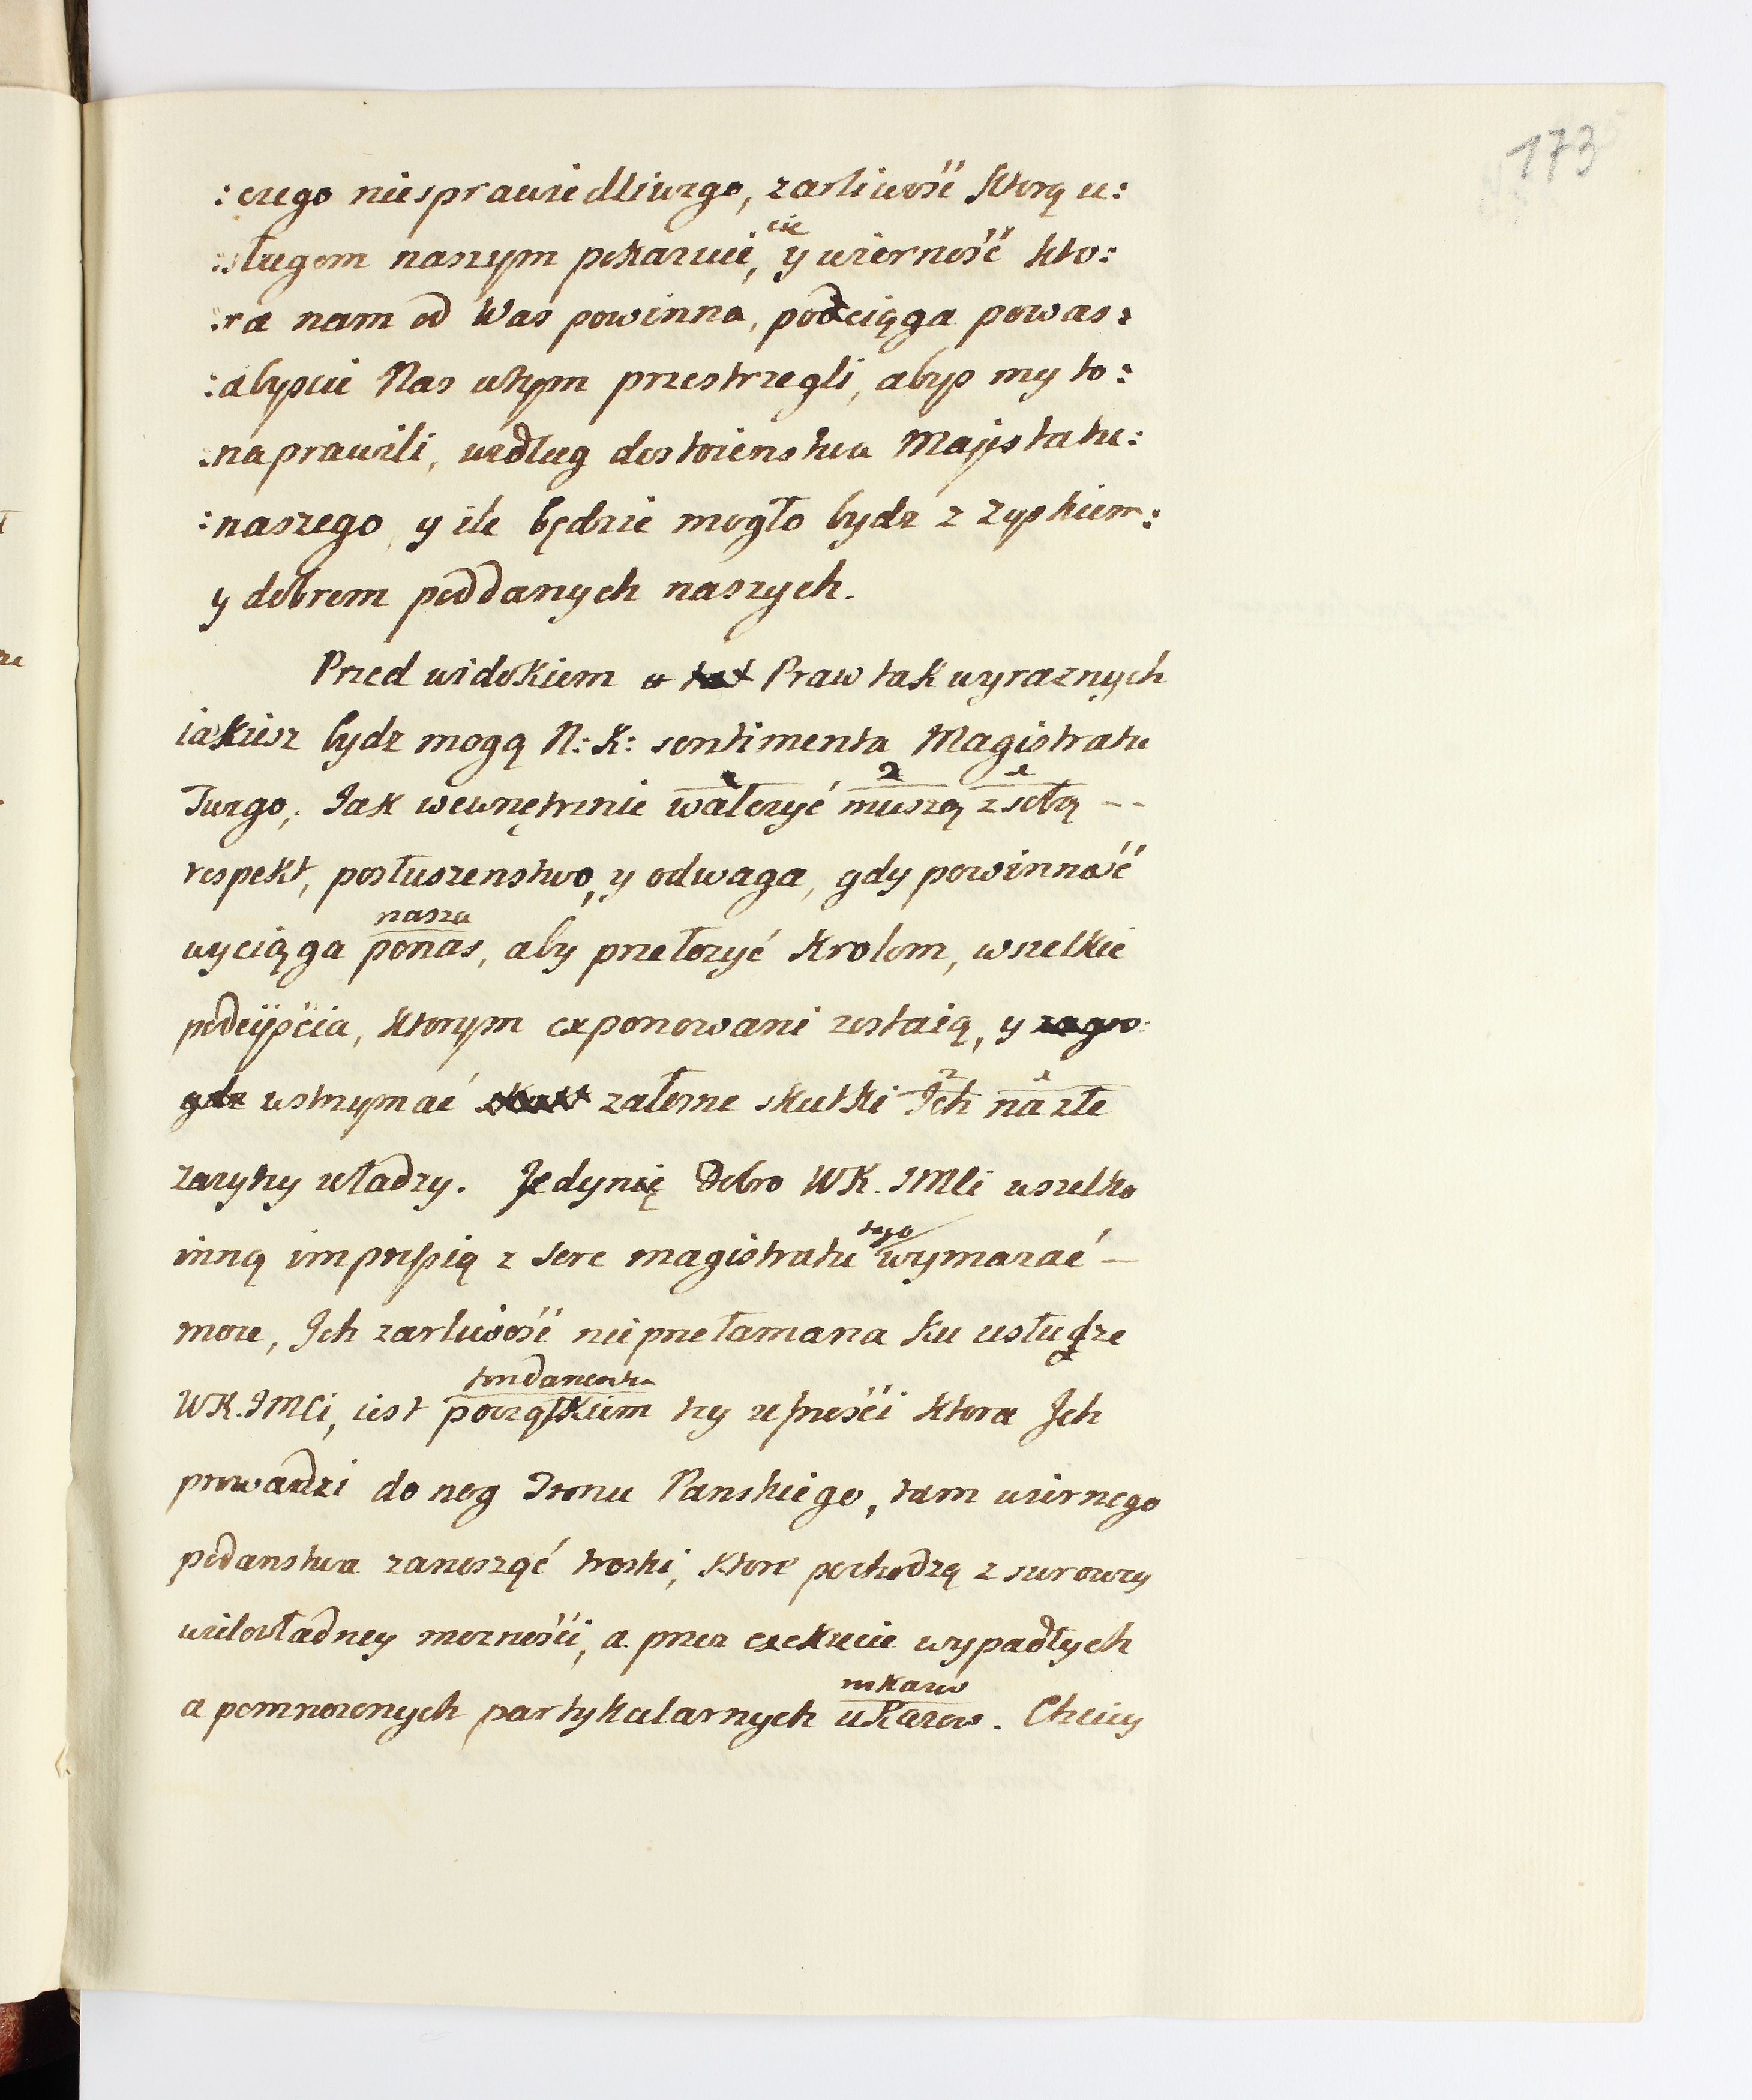 173
: czego niesprawiedliwego, zarliwość ktorą u:
cie
: sługom naszym pokazuie, y wierność kto:
: ra nam od Was powinna, podciąga powas:
: abyscie Nas wtym przestrzegli, abys my to:
: naprawili, według dostoienstwa Majestatu:
: naszego, y ile będzie mogło bydz z zyskiem:
y dobrem poddanych naszych.
Przed widokiem Praw tak wyraznych
iakiesz bydz mogą N: K: sentimenta Magistratu
2 1
Twego, Jak wewnętrznie walczyć muszą zsobą --
respekt, posłuszenstwo, y odwaga, gdy powinność
nasza
wyciąga ponas, aby przełozyć Krolom, wszelkie
podeyścia, ktorym exponowani zostaią, y
2 1
wstrzymać załosne skutki Ich na złe
zazyty władzy. Jedynie Dobro WK. JMCi wszelko
tego
inną impressią z serc magistratu wymazać —
moze, Ich zarliwość nieprzełamana ku usłudze
fundamentem
WK. JMCi, iest początkiem tey ufności ktora Ich
prowadzi do nog Tronu Panskiego, tam wiernego
podanstwa zanoszęć troski, ktore pochodzą z surowey
wielowładney mozności, a przez exekucie wypadłych
nakazow
a pomnozonych partykularnych ukazow. Chciey